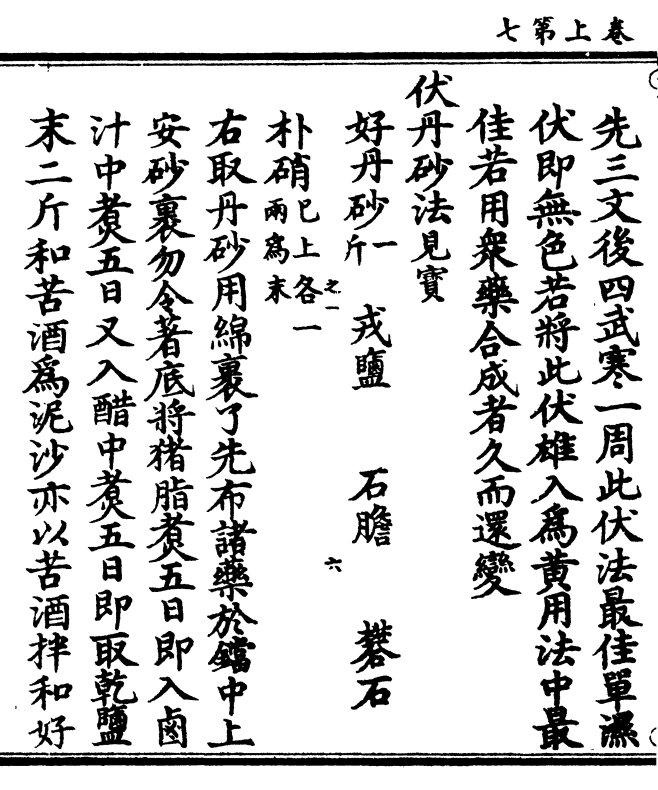 卷上第七
先三文後四武寒一周此伏法最佳單濕
伏即無色若將此伏雄入爲黄用法中最
佳若用衆藥合成者久而還變
伏丹砂法見寶
好丹砂一斤 戎鹽 石膽 礬石
朴硝巳上各一兩爲末
之一
六
右取丹砂用綿裹了先布諸藥於鐺中上
安砂裹勿令著底將猪脂煑五日即入鹵
汁中煑五日又入醋中煑五日即取乾鹽
末二斤和苦酒爲泥沙亦以苦酒拌和好